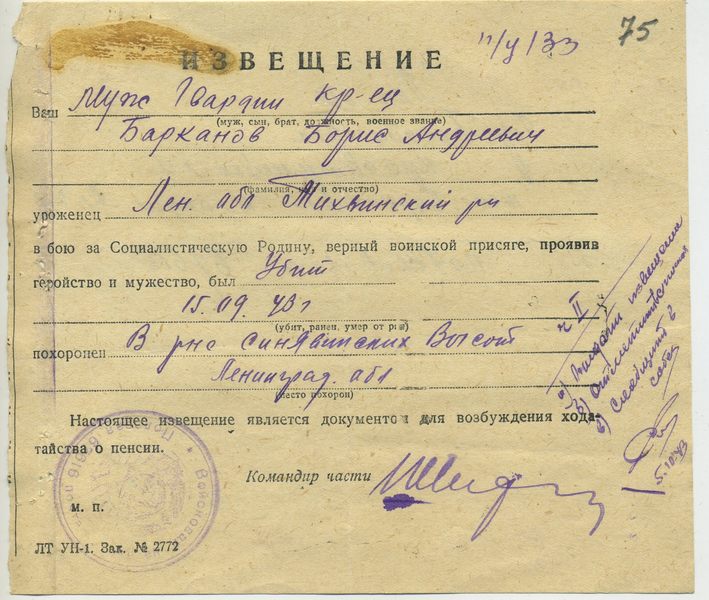 75
ИЗВЕЩЕНИЕ
Ваш Муж Гвардии кр-ец
(муж, сын, брат, должность, военное звание)
Барханов Борис Андреевич
(фамилия, имя и отчество)
уроженец Лен. обл Тихвинский р-н
в бою за Социалистическую Родину, верный воинской присяге, проявив
геройство и мужество, был Убит
15.09.43 г
(убит, ранен, умер от ран)
похоронен В р-не Синявинских Высот
Ленинград. обл
(место похорон)
Настоящее извещение является документом для возбуждения хода-
тайства о пенсии.
Командир части
м. п.
ЛТ УН-1. Зак. № 2772
ч II
извещение
в) Сообщить в
5.10.43